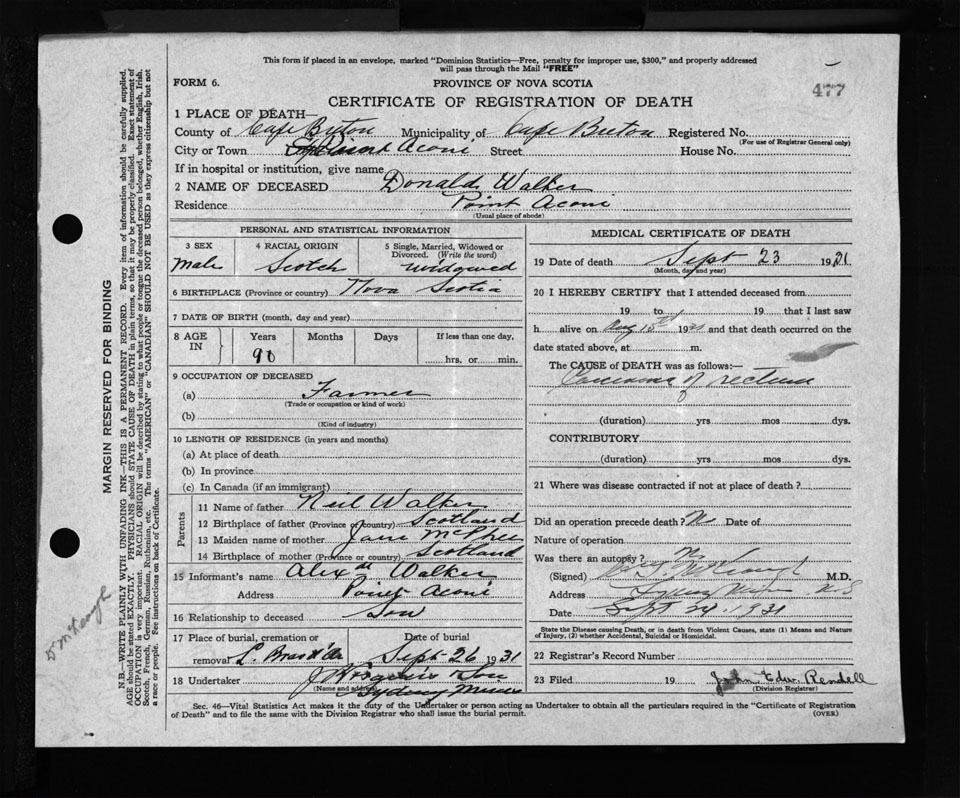 This form if placed in an envelope, marked "Dominion Statistics—Free, penalty for improper use, $300," and properly addressed
will pass through the Mail "FREE"
477
FORM 6.
PROVINCE OF NOVA SCOTIA
CERTIFICATE OF REGISTRATION OF DEATH
1 PLACE OF DEATH—
County of Cape Breton Municipality of Cape Breton Registered No.
(For use of Registrar General only)
City or Town Point Aconi Street House No.
If in hospital or institution, give name
2 NAME OF DECEASED Donald Walker
Residence Point Aconi
(Usual place of abode)
PERSONAL AND STATISTICAL INFORMATION
3 SEX 4 RACIAL ORIGIN 5 Single, Married, Widowed or Divorced. (Write the word)
Male Scotch Widowed
6 BIRTHPLACE (Province or country) Nova Scotia
7 DATE OF BIRTH (month, day and year)
8 AGE IN Years Months Days If less than one day,
90 hrs. or min.
9 OCCUPATION OF DECEASED
(a) Farmer
(Trade or occupation or kind of work)
(b)
(Kind of industry)
10 LENGTH OF RESIDENCE (in years and months)
(a) At place of death
(b) In province
(c) In Canada (if an immigrant)
Parents
11 Name of father Neil Walker
12 Birthplace of father (Province or country) Scotland
13 Maiden name of mother Jane McPhee
14 Birthplace of mother (Province or country) Scotland
15 Informant's name Alex Walker
Address Point Aconi
16 Relationship to deceased Son
17 Place of burial, cremation or Date of burial
removal L. Bras d'Or Sept 26 1931
18 Undertaker & Son
(Name and address) Sydney Mines
MEDICAL CERTIFICATE OF DEATH
19 Date of death Sept 23 1931
(Month, day and year)
20 I HEREBY CERTIFY that I attended deceased from
19 to 19 that I last saw
h alive on Aug 15th 1931 and that death occurred on the
date stated above, at m.
The CAUSE of DEATH was as follows:—
Carcinoma of rectum
(duration) yrs mos dys.
CONTRIBUTORY
(duration) yrs mos dys.
21 Where was disease contracted if not at place of death?
Did an operation precede death? No Date of
Nature of operation
Was there an autopsy? No
(Signed) M.D.
Address Sydney Mines N.S
Date Sept 24 1931
State the Disease causing Death, or in death from Violent Causes, state (1) Means and Nature
of Injury, (2) whether Accidental, Suicidal or Homicidal.
22 Registrar's Record Number
23 Filed 19 John Edw. Rendell
(Division Registrar)
Sec. 46—Vital Statistics Act makes it the duty of the Undertaker or person acting as Undertaker to obtain all the particulars required in the "Certificate of Registration
of Death" and to file the same with the Division Registrar who shall issue the burial permit. (OVER)
MARGIN RESERVED FOR BINDING
N.B.—WRITE PLAINLY WITH UNFADING INK—THIS IS A PERMANENT RECORD. Every item of information should be carefully supplied.
AGE should be stated EXACTLY. PHYSICIANS should STATE CAUSE OF DEATH in plain terms, so that it may be properly classified. Exact statement of
OCCUPATION is very important. RACIAL ORIGIN will be described by stating to what people or tongue the deceased person belonged, whether English, Irish,
Scotch, French, German, Russian, Ruthenian, etc. The terms "AMERICAN" or "CANADIAN" SHOULD NOT BE USED as they express citizenship but not
a race or people. See instructions on back of Certificate.
Dr McKeough